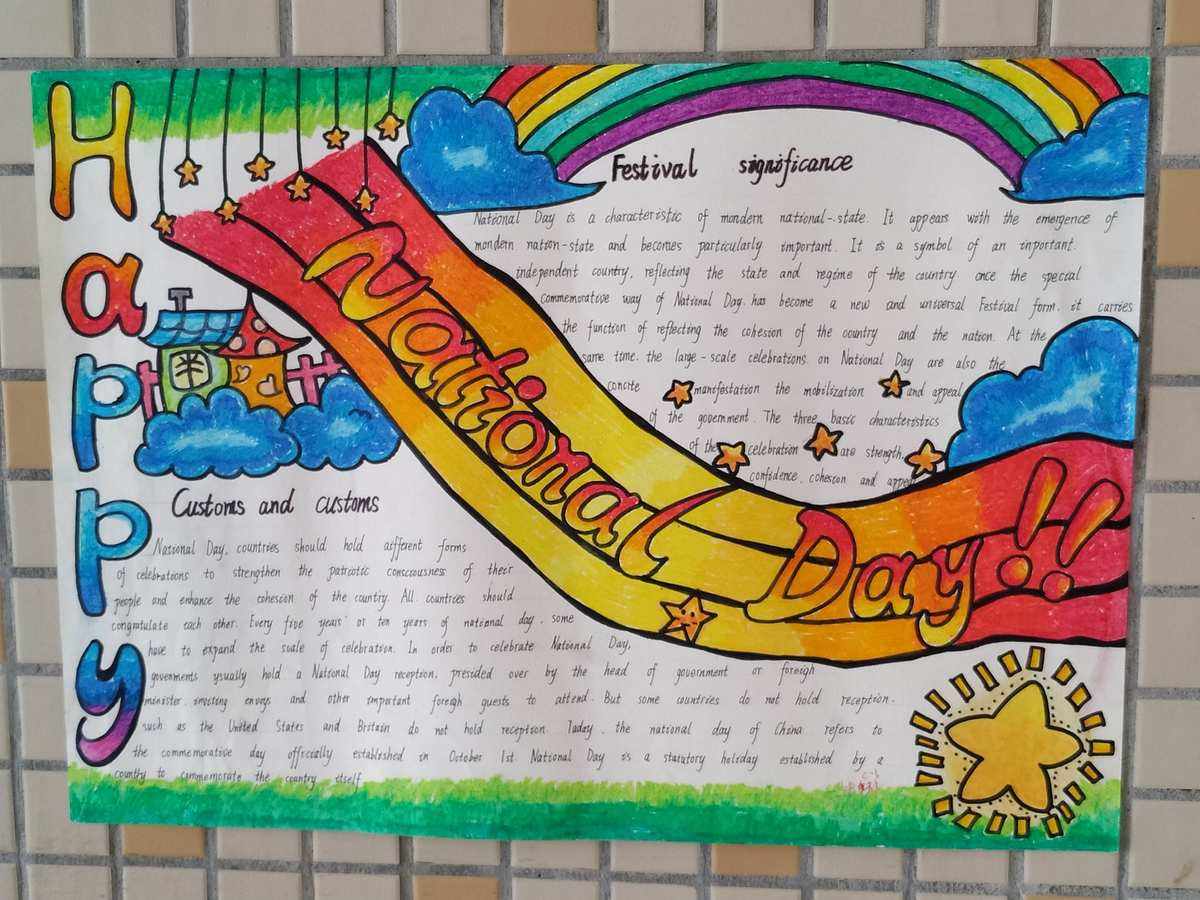 Happy
National Day!!
Festival significance
National Day is a characteristic of mondern national-state. It appears with the emergence of
mondern nation-state and becomes particularly important. It is a symbol of an inportant
independent country, reflecting the state and regime of the country once the special
commemorative way of National Day. has become a new and universal Festival form. it carries
the function of reflecting the cohesion of the country and the nation. At the
same time. the large-scale celebrations on National Day are also the
concite manifestation the mobilization and appeal
of the government. The three basic characteristics
of the celebration are strength,
confidence. cohesion and appeal
Customs and customs
National Day, countries should hold different forms
of celebrations to strengthen the patriotic consciousness of their
people and enhance the cohesion of the country. All countries should
congratulate each other. Every five years or ten years of national day. some
have to expand the scale of celebration. In order to celebrate National Day,
govenments usually hold a National Day reception, presided over by the head of government or foreigh
minister inviting envoys and other important foreigh guests to attend. But some countries do not hold reception.
such as the United States and Britain do not hold reception. Taday. the national day of China refers to
the commemorative day officially established in October 1st National Day is a statutory holiday established by a
country to commemorate the country itself